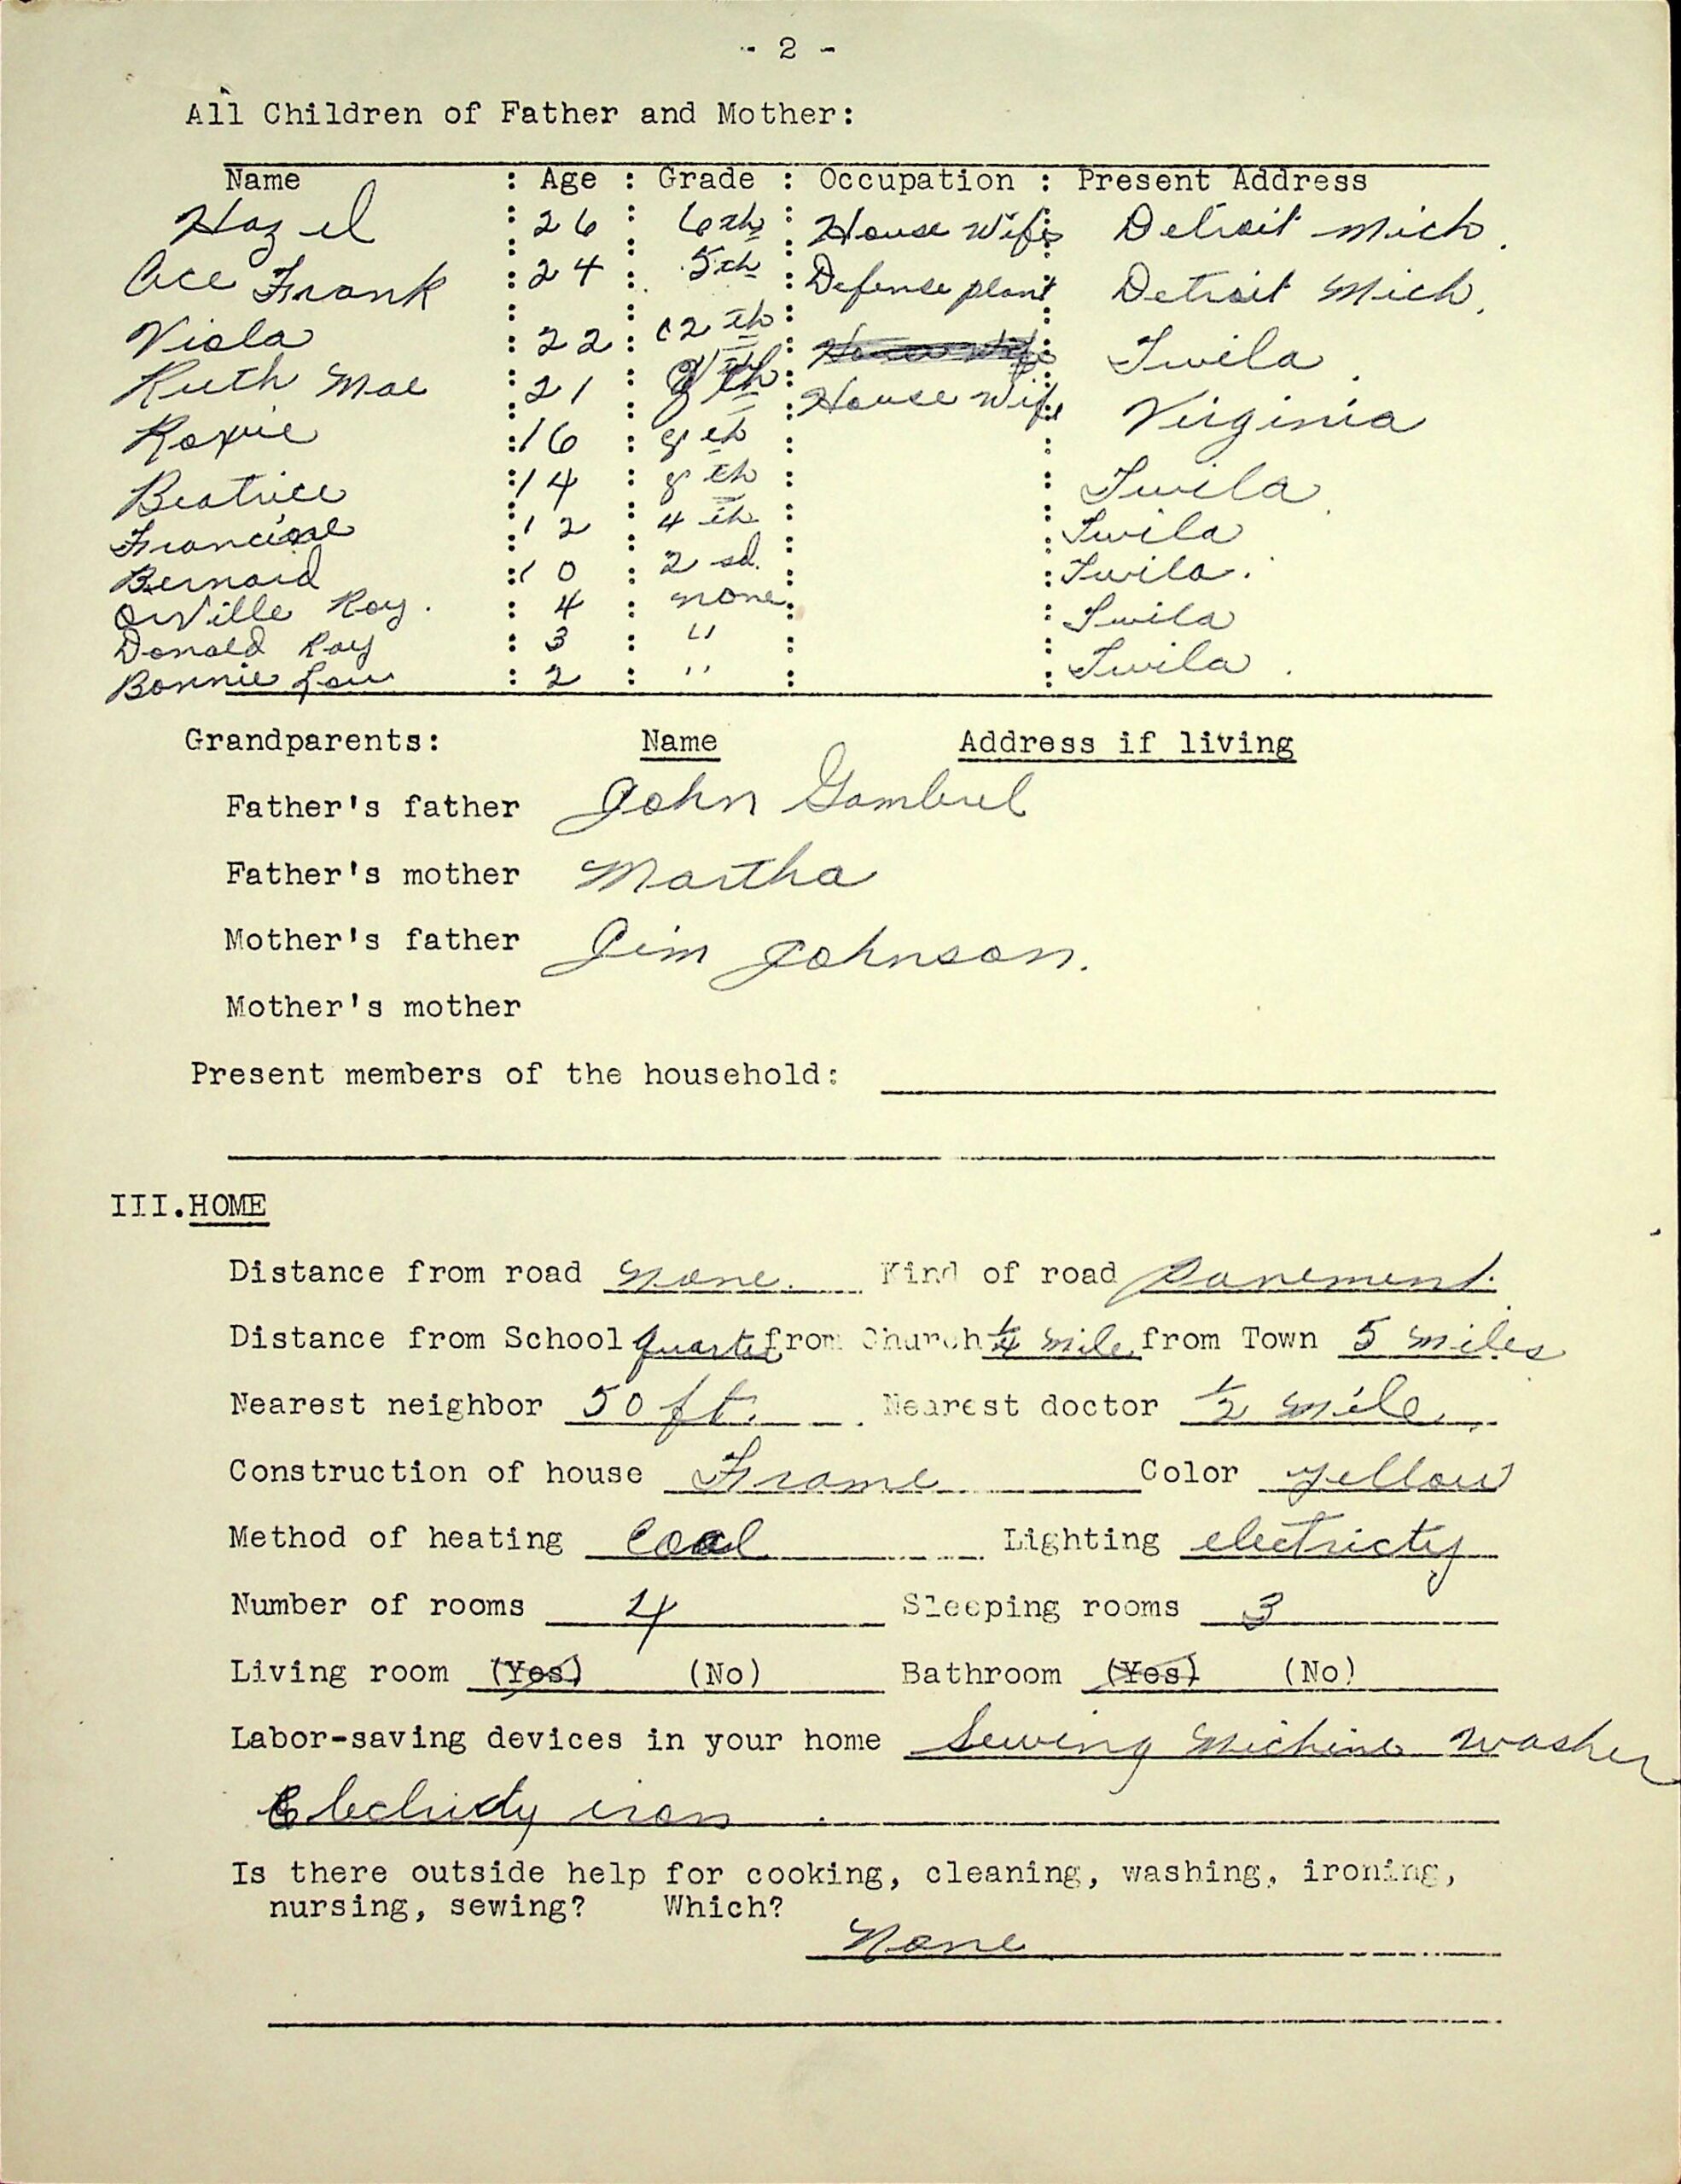 - 2 -
All Children of Father and Mother:
Name : Age : Grade : Occupation : Present Address
Hazel : 26 : 6th : House wife : Detroit Mich.
Ace Frank : 24 : 5th : Defense plant : Detroit Mich.
Viola : 22 : 12th : House wife : Twila.
Ruth Mae : 21 : 8th : House wife : Virginia
Roxie : 16 : 8th : :
Beatrice : 14 : 8th : : Twila.
: 12 : 4th : : Twila
Bernard : 10 : 2sd. : : Twila.
Orville Roy. : 4 : none : : Twila
Donald Ray : 3 : " : :
Bonnie Lou : 2 : " : : Twila.
Grandparents: Name Address if living
Father's father John Gambrel
Father's mother Martha
Mother's father Jim Johnson.
Mother's mother
Present members of the household:
III. HOME
Distance from road None. Kind of road Pavement.
Distance from School quarter from Church ¼ mile from Town 5 miles
Nearest neighbor 50 ft. Nearest doctor ½ mile.
Construction of house Frame Color yellow
Method of heating Coal Lighting electricty
Number of rooms 4 Sleeping rooms 3
Living room (Yes) (No) Bathroom (Yes) (No)
Labor-saving devices in your home Sewing Michine washer
iron.
Is there outside help for cooking, cleaning, washing, ironing,
nursing, sewing? Which?
None